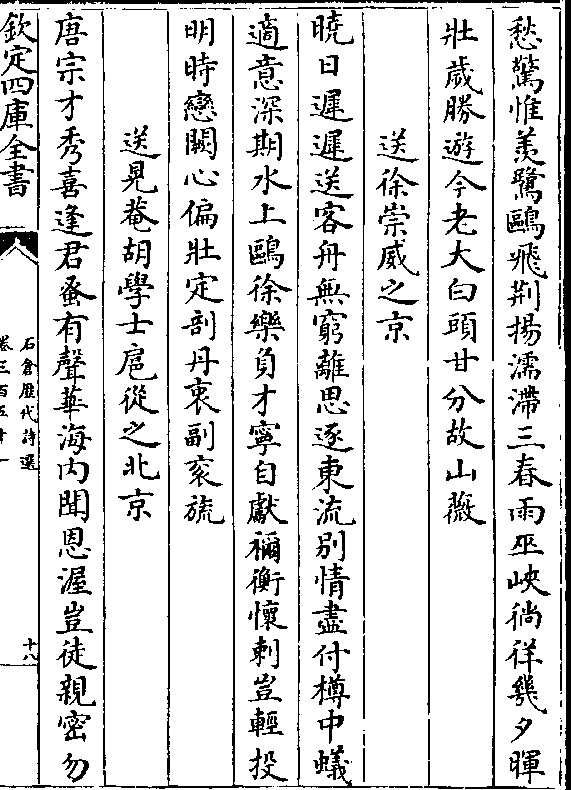 愁驚惟羡鷺鷗飛荆揚濡滯三春雨巫峽徜徉幾夕暉
壯歲勝遊今老大白頭甘分故山薇
送徐崇威之京
曉日遲遲送客舟無窮離思逐東流別情盡付樽中蟻
適意深期水上鷗徐樂負才寧自獻禰衡懷刺豈輕投
明時戀闕心偏壯定剖丹衷副衮旒
送晃菴胡學士扈從之北京
唐宗才秀喜逢君蚤有聲華海内聞恩渥豈徒親密勿
欽定四庫全書
石倉歷代詩選
卷三百五十一
十八